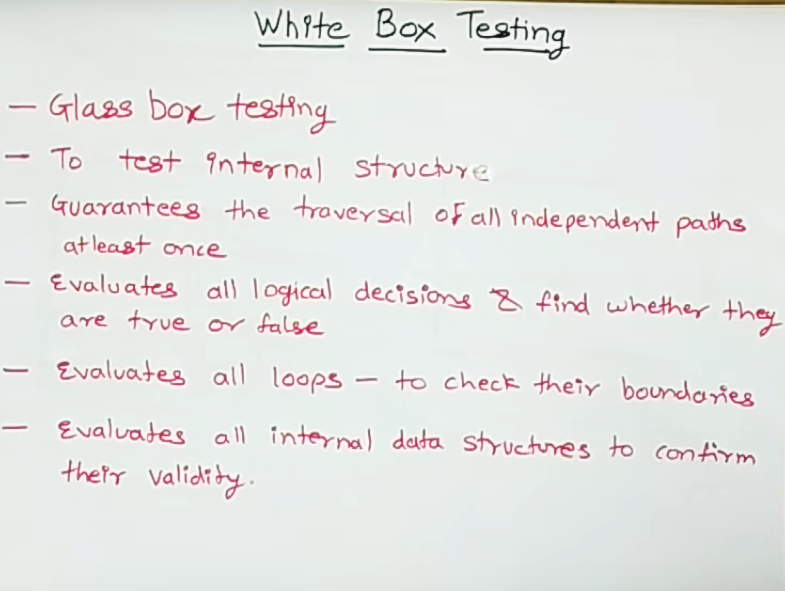 White Box Testing
– Glass box testing
– To test internal structure
– Guarantees the traversal of all independent paths
atleast once
– Evaluates all logical decisions & find whether they
are true or false
– Evaluates all loops – to check their boundaries
– Evaluates all internal data structures to confirm
their validity.